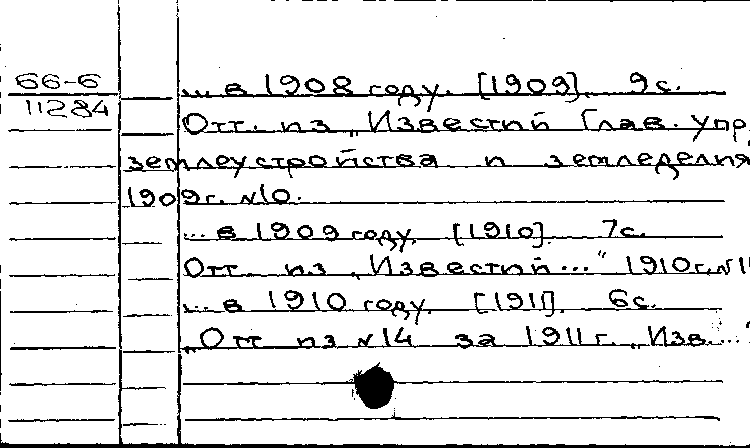 66-6
11284
... в 1908 году. [1909]. 9с.
Отт. из „Известий Глав. упр.
землеустройства и земледелия"
1909г. №10.
... в 1909 году. [1910]. 7с.
Отт. из „Известий..." 1910г. №11
... в 1910 году. [1911]. 6с.
„Отт из №14 за 1911г. „Изв...."